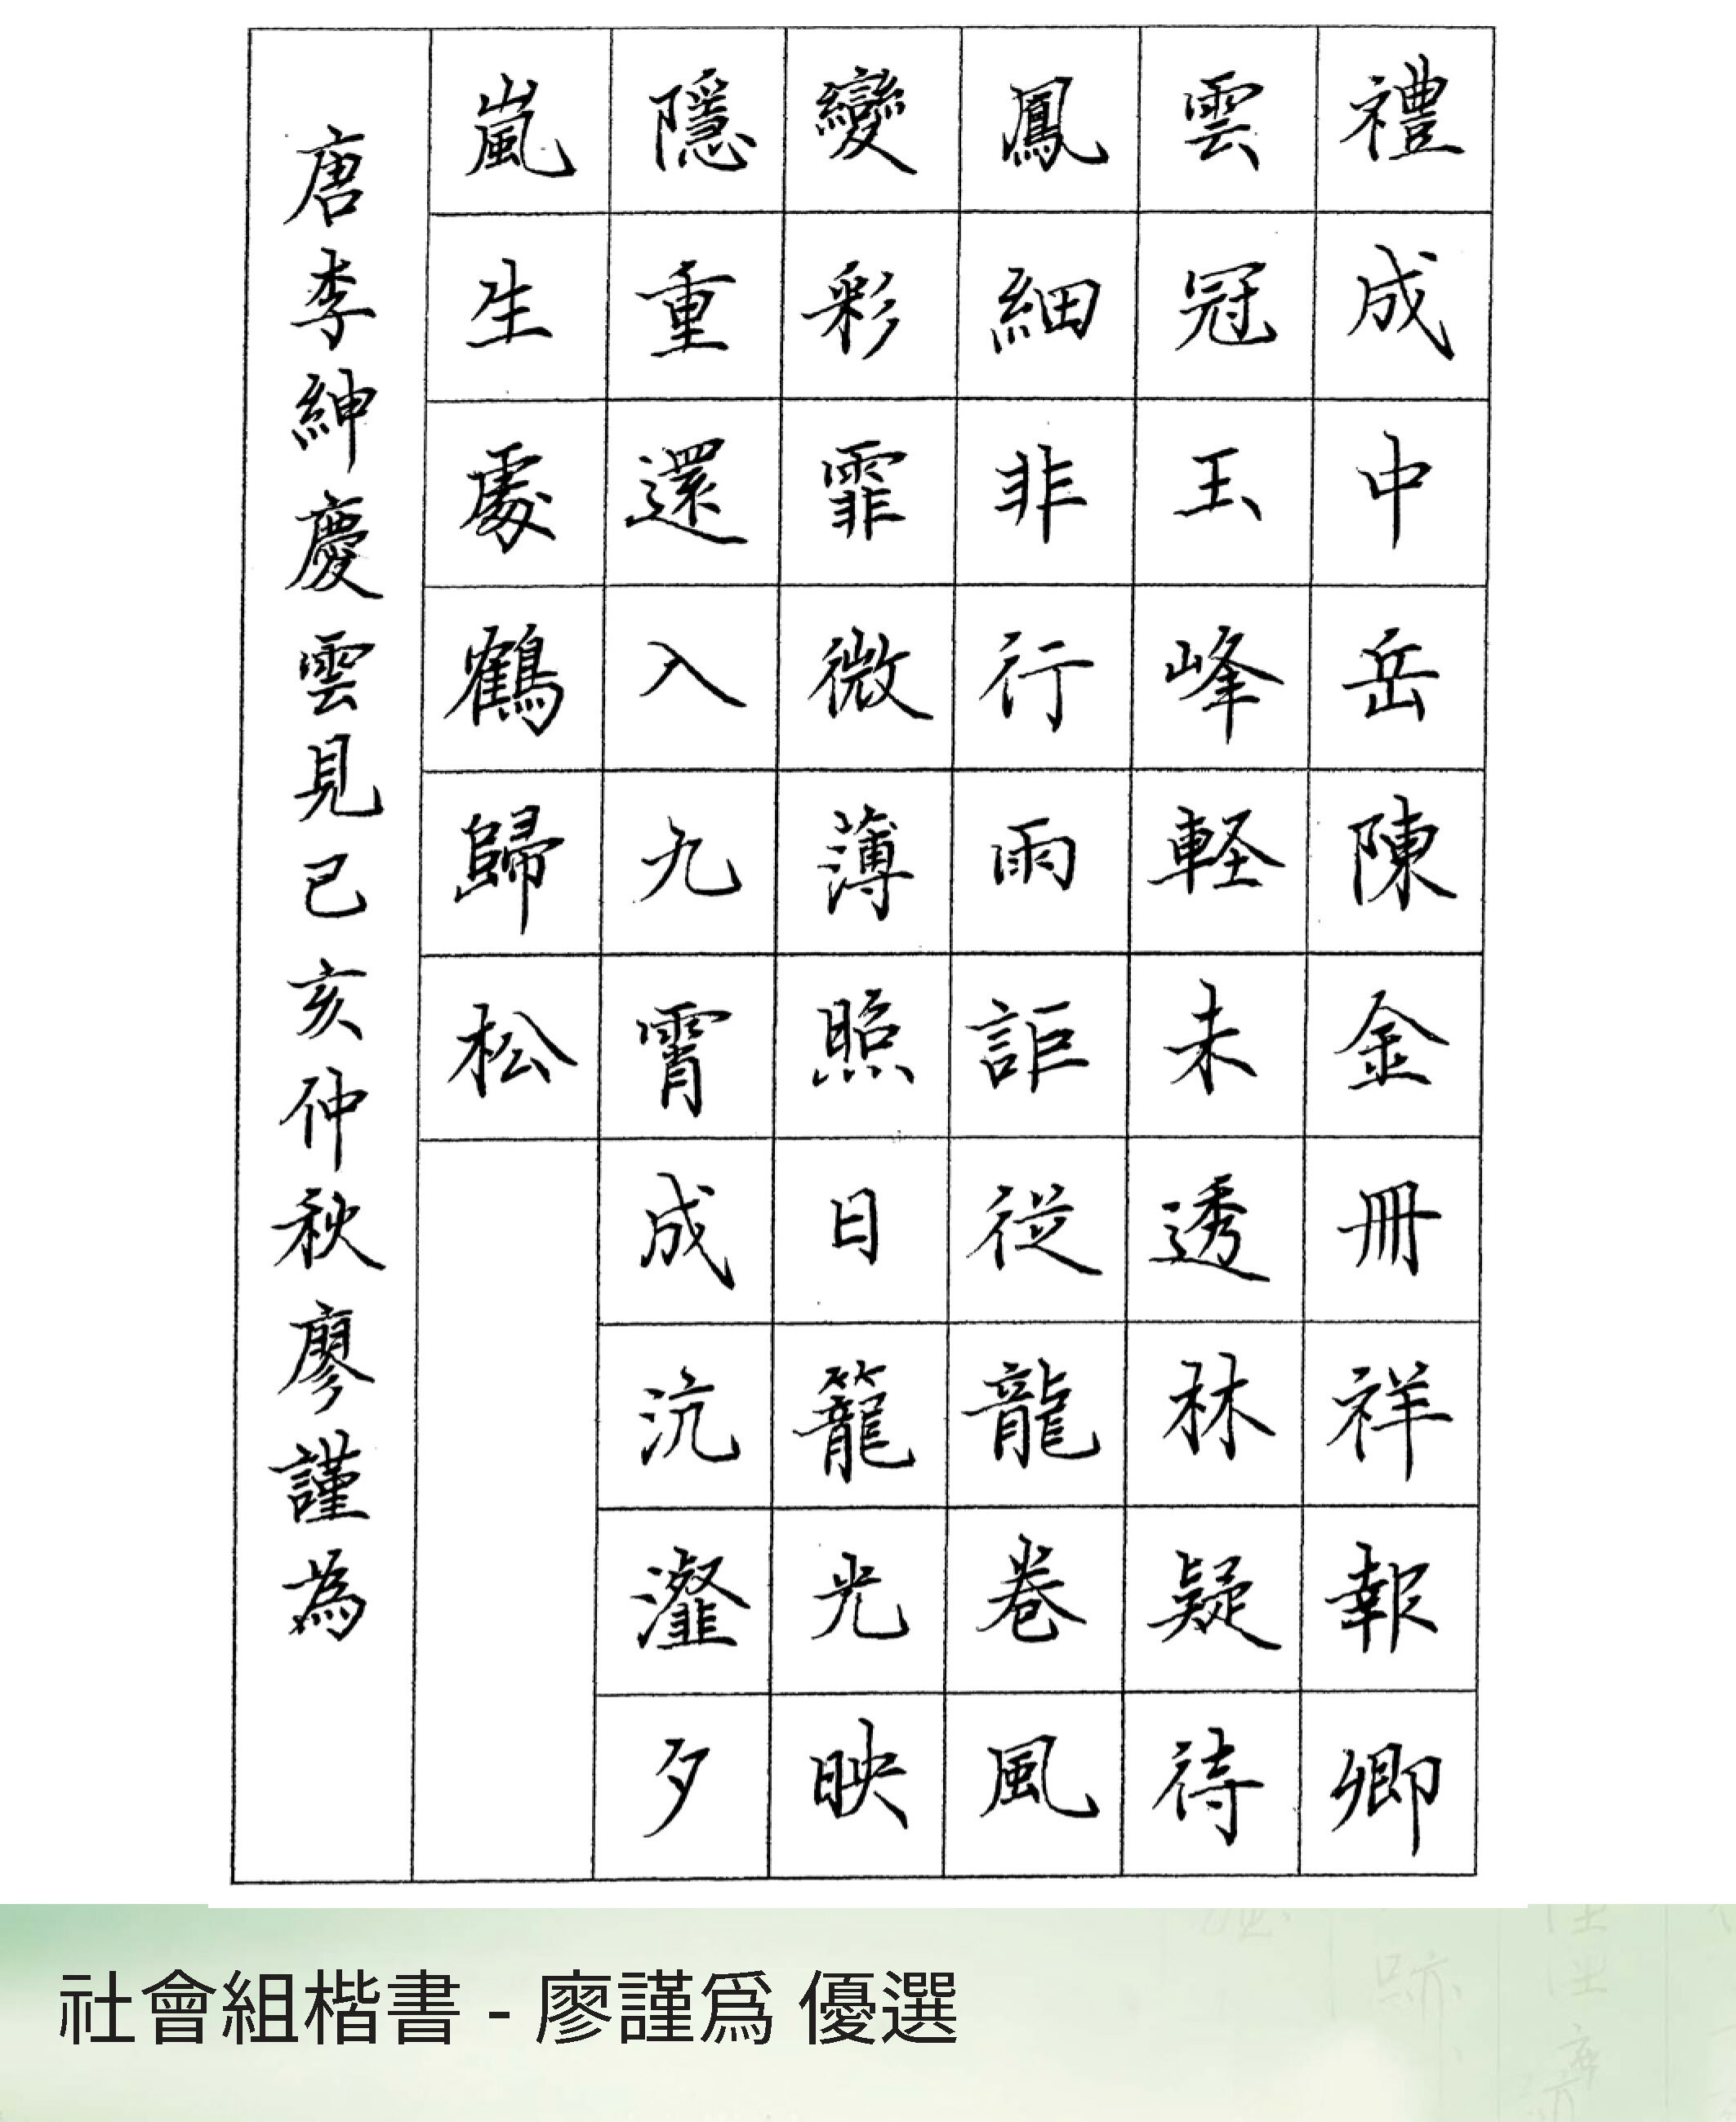 禮成中岳陳金冊祥報卿
雲冠玉峰軽未透林疑待
鳳細非行雨詎從龍卷風
變彩霏微薄照日籠光映
隱重還入九霄成沆瀣夕
嵐生處鶴歸松
唐李紳慶雲見己亥仲秋廖謹為
社會組楷書 - 廖謹爲 優選